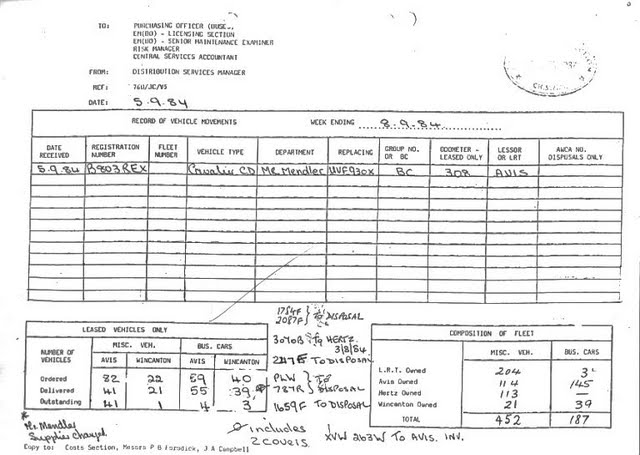 TO: PURCHASING OFFICER (BUSE.,
EM(RO) - LICENSING SECTION
EM(RO) - SENIOR MAINTENANCE EXAMINER
RISK MANAGER
CENTRAL SERVICES ACCOUNTANT
FROM: DISTRIBUTION SERVICES MANAGER
REF: 760/JC/VS
DATE: 5.9.84
RECORD OF VEHICLE MOVEMENTS WEEK ENDING 8.9.84
DATE RECEIVED REGISTRATION NUMBER FLEET NUMBER VEHICLE TYPE DEPARTMENT REPLACING GROUP NO. OR BC ODOMETER - LEASED ONLY LESSOR OR LRT AWCA NO. DISPOSALS ONLY
5.9.84 B803REX Cavalier CD MR Mendler UVF930X BC 308 AVIS
1754F
2087F } TO DISPOSAL
3070B TO HERTZ
3/8/84
TO DISPOSAL
PLW
787R } TO DISPOSAL
1659F TO DISPOSAL
XVW 263W TO AVIS. INV.
LEASED VEHICLES ONLY
NUMBER OF VEHICLES MISC. VEH. BUS. CARS
AVIS WINCANTON AVIS WINCANTON
Ordered 82 22 59 40
Delivered 41 21 55 39
Outstanding 41 1 4 3
COMPOSITION OF FLEET
MISC. VEH. BUS. CARS
L.R.T. Owned 204 3
Avis Owned 114 145
Hertz Owned 113 —
Wincanton Owned 21 39
TOTAL 452 187
* Mr. Mendler
Supplies charged
includes
Copy to: Costs Section, Messrs P B J A Campbell